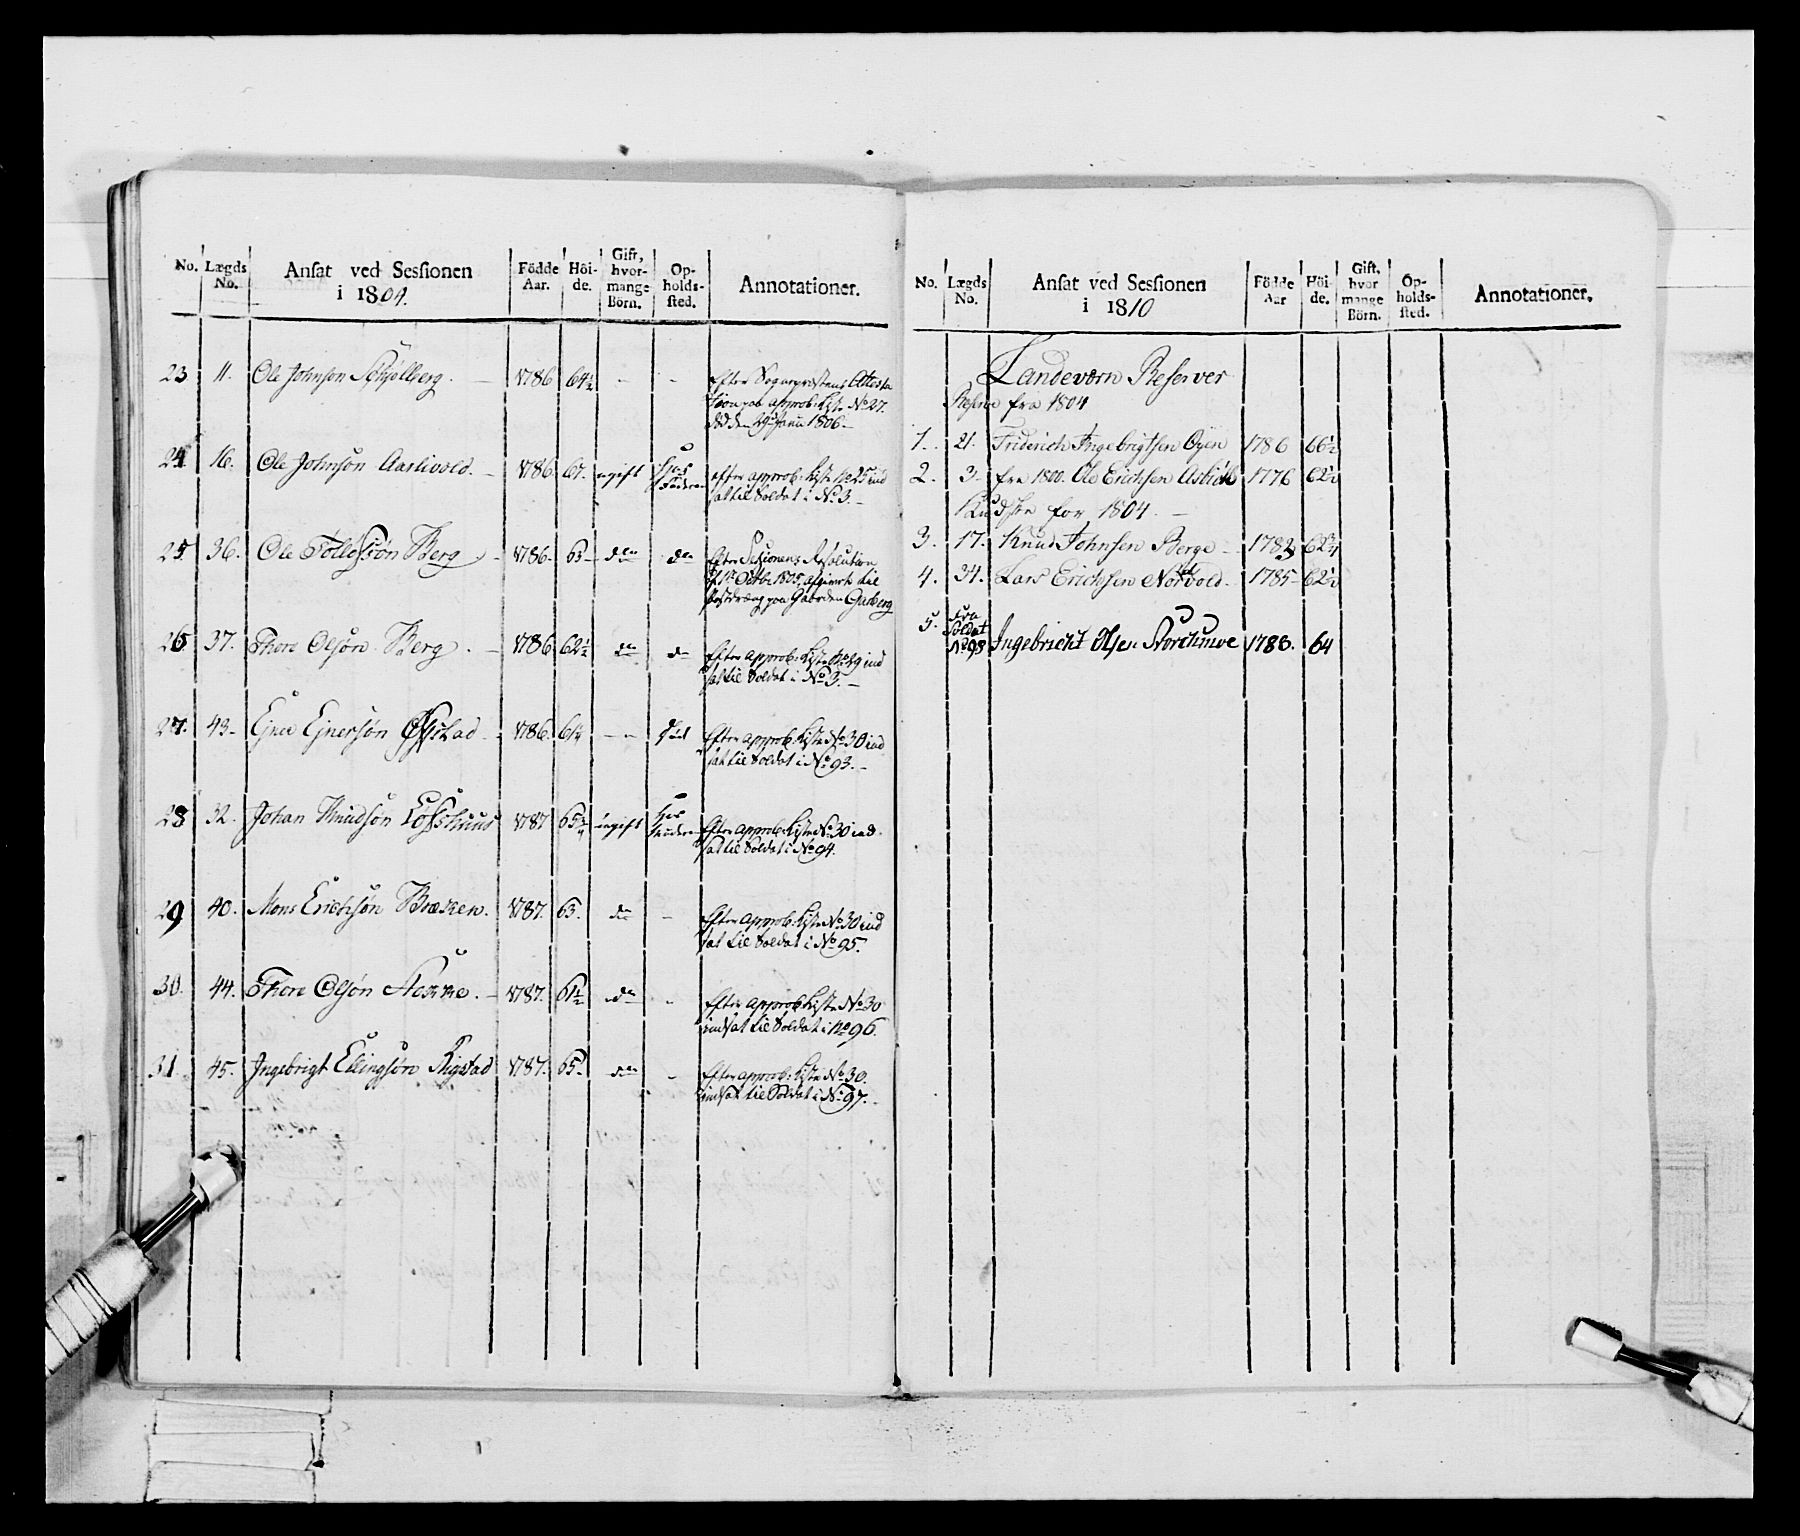 No. Lægds No. Ansat ved Sessionen i 1804. Födde Aar. Höi-de. Gift, hvor-mange Börn. Op-holds-sted. Annotationer.
23 11. Ole Johnson Schjølberg. 1786 64½ - -
Efter Sogneprestens Attesta
tion og approb: Liste No 27.
død den Janu 1806.
24 16. Ole Johnsøn Aarlivold. 1786. 67. ugift hos Faderen
efter approb: Liste No 25 ind
sat til Soldat i No 3.
25 36. Ole Tollefsøn Berg 1786. 63 do do
Efter Sesionens Resolution
af 1te Octbr 1805, afgivet til
Postdræng paa Gaarden Garberg
26 37. Thore Olsøn Berg. 1786 62½ do do
Efter approb: Liste No 29 ind
sat til Soldat i No 3.
27. 43. Ejner Ejnersøn Øfstad 1786. 61½ - -
Efter approb: Liste No 30 ind
sat til Soldat i No 93.
28 32. Johan Knudsøn Lofshuus 1787 65¾ ugift hos
Efter approb: Liste No 30 ind
sat til Soldat i No 94.
29 40. Mons Erichsøn Bræken. 1787. 63. do -
Efter approb: Liste No 30 ind
sat til Soldat i No 95.
30. 44. Thore Olsøn Stokke. 1787. 61½ do -
Efter approb: Liste No 30
indsat til Soldat i No 96.
31. 45. Ingebrigt Ellingsøn Rigstad 1787. 65. do -
Efter approb: Liste No 30.
indsat til Soldat i No 97.
No. Lægds No. Ansat ved Sessionen i 1810 Födde Aar Höi-de. Gift, hvor mange Börn. Op-holds-sted. Annotationer.
Landeværn Reserver
Reserve fra 1804
1. 21. Friderich Ingebrigtsen Øyen 1786 66½
2. 3. fra 1800. Ole Erichsen 1776 62½
for 1804.
3. 17. Knud Johnsen Berge 1782 62¾
4. 34. Lars Erichsen Norvold. 1785 62½
5. Fra
Soldat
No 98 Ingebricht Olsen 1788. 64